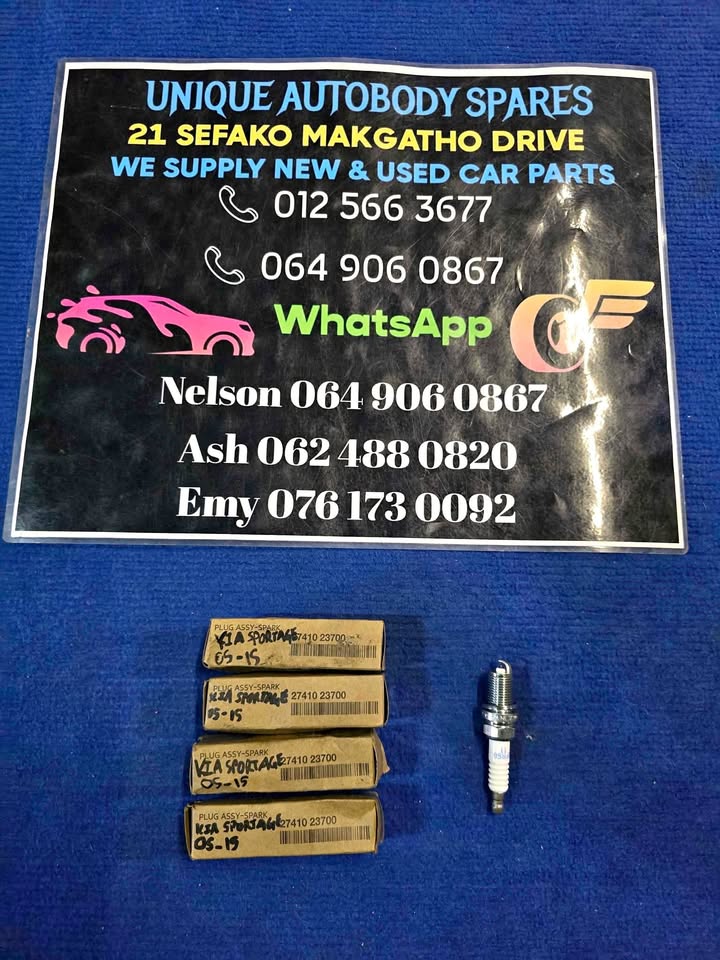 UNIQUE AUTOBODY SPARES
21 SEFAKO MAKGATHO DRIVE
WE SUPPLY NEW & USED CAR PARTS
012 566 3677
064 906 0867
WhatsApp
Nelson 064 906 0867
Ash 062 488 0820
Emy 076 173 0092
PLUG ASSY-SPARK
KIA SPORTAGE 27410 23700
05-15
PLUG ASSY-SPARK
KIA SPORTAGE 27410 23700
05-15
PLUG ASSY-SPARK
KIA SPORTAGE 27410 23700
05-15
PLUG ASSY-SPARK
KIA SPORTAGE 27410 23700
05-15